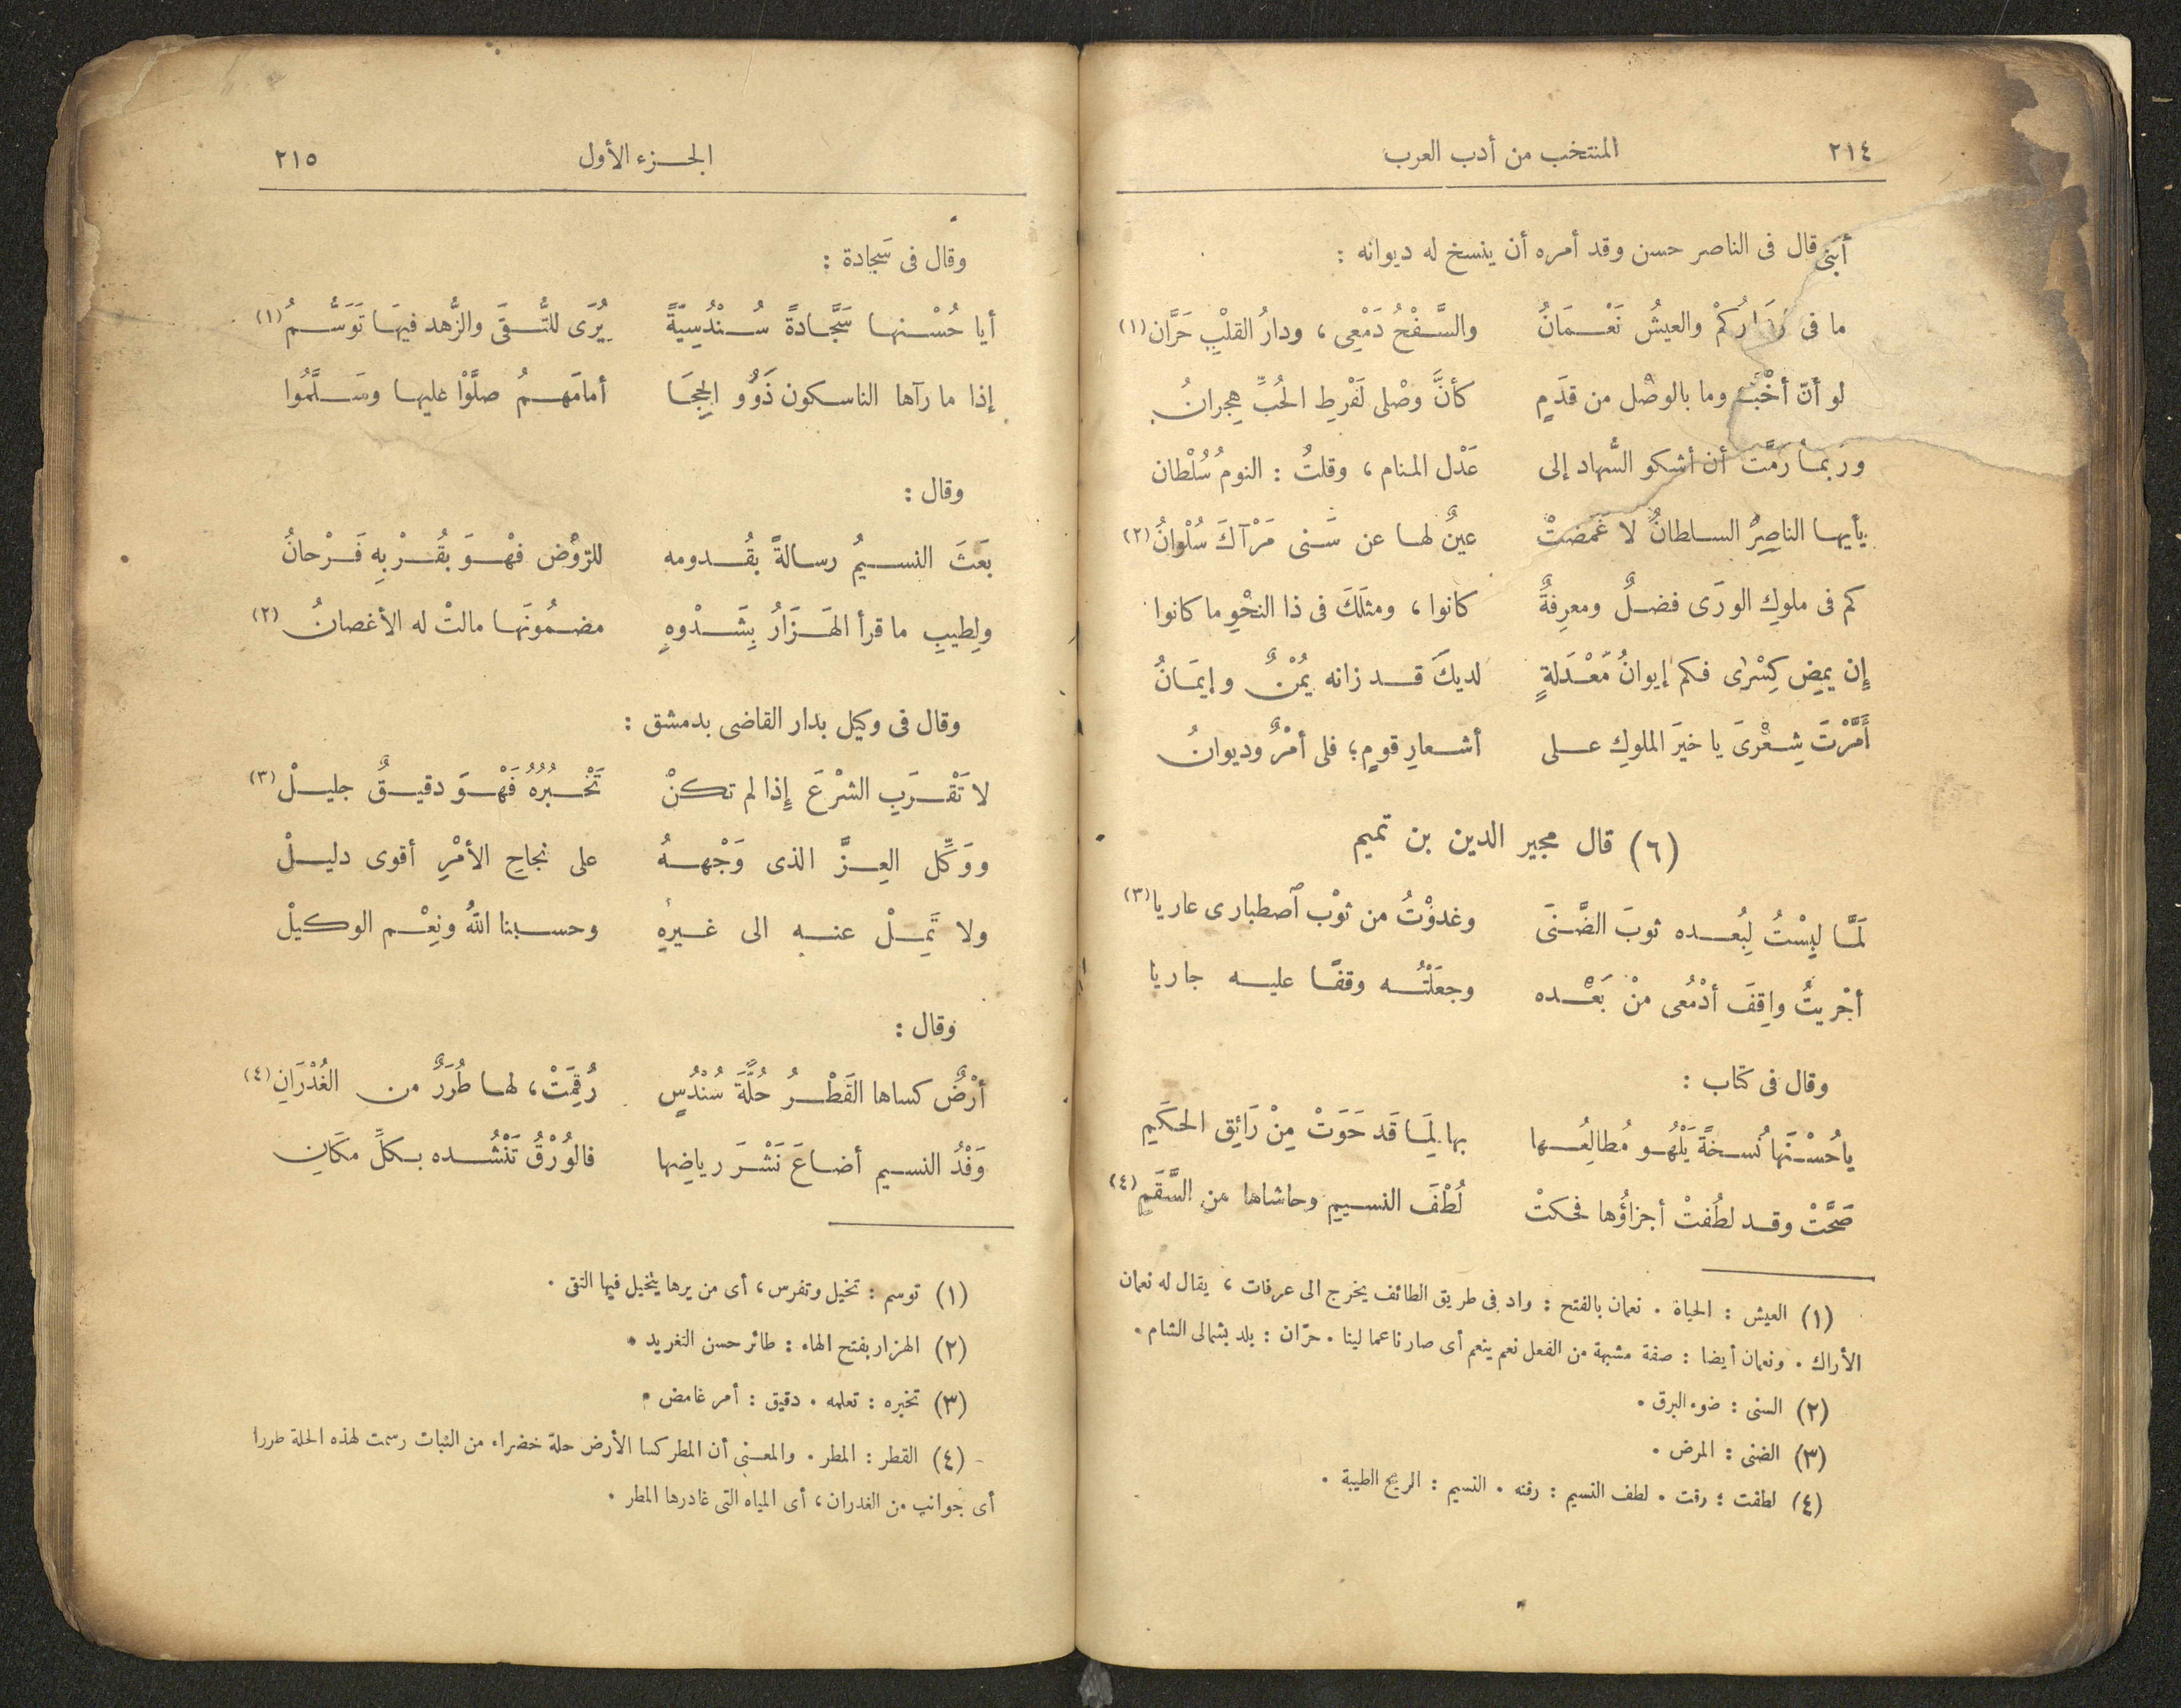 ٢١٤ المنتخب من أدب العرب
قال فى الناصر حسن وقد أمره أن ينسخ له ديوانه :
ما فى والعيشُ نَعْمَانُ والسَّفْحُ دَمْعِى ، ودارُ القلْبِ حَرَّان (١)
لو أنّ وما بالوصْل من قدَمٍ كأنَّ وصْلى لَفَرطِ الحُبِّ هِجرانُ
وربما رُمْتَ أن أشكو السُّهاد إلى عَدْل المنام ، وقلتُ : النومُ سُلْطان
يأيها الناصِرُ السلطانُ لا غَمَضتْ عينٌ لها عن سَنى مَرْآكَ سُلْوانُ (٢)
كم فى ملوكِ الورَى فضلٌ ومعرِفةٌ كانوا ، ومثلَكَ فى ذا النحْوِ ما كانوا
إن يمضِ كِسْرٰى فكم إيوانُ مَعْدَلةٍ لديكَ قد زانه يُمْنٌ وإيمَانُ
أَمَّرْتَ شِعْرىَ يا خيرَ الملوكِ على أشعارِ قومٍ ؛ فلى أمْرٌ وديوانُ
(٦) قال مجير الدين بن تميم
لَمَّا لبِسْتُ لِبُعده ثوبَ الضَّنَى وغدوْتُ من ثوْب ٱصطبارى عاريا (٣)
أجْريتُ واقِفَ أدْمُعى منْ بَعْده وجعَلْتُه وقفًا عليه جاريا
وقال فى كتاب :
ياحُسْنَها نُسخةً يَلْهُو مُطالِعُها بها لِمَا قَد حَوَتْ مِنْ رَائِق الحكَمِ
صَحَّتْ وقد لطُفتْ أجزاؤُها فحكتْ لُطْفَ النسيمِ وحاشاها من السَّقَمِ (٤)
(١) العيش : الحياة . نعمان بالفتح : واد فى طريق الطائف يخرج الى عرفات ، يقال له نعمان
الأراك . ونعمان أيضا : صفة مشبهة من الفعل نعم ينعم أى صار ناعما لينا . حرّان : بلد بشمالى الشام .
(٢) السنى : ضوء البرق .
(٣) الضنى : المرض .
(٤) لطفت : رقت . لطف النسيم : رقته . النسيم : الريح الطيبة .
الجزء الأول ٢١٥
وقال فى سَجادة :
أيا حُسْنها سَجَّادةً سُنْدُسِيَّةً يُرَى للتُّقَى والزُّهد فيهَا تَوَسُّمُ (١)
إذا ما رآها الناسكون ذَوُو الحِجَا أمامَهمُ صلَّوْا عليها وسَلَّمُوا
وقال :
بَعَثَ النسيمُ رسالةً بقُدومه للرّوْض فهْوَ بقُرْبِهِ فَرْحانُ
ولِطيبِ ما قرأ الهَزَارُ بِشَدْوِهِ مضمُونَها مالتْ له الأغصانُ (٢)
وقال فى وكيل بدار القاضى بدمشق :
لا تَقْرَبِ الشرْعَ إذا لم تكنْ تَخْبُرُهُ فَهْوَ دقيقٌ جليلْ (٣)
ووَكِّل العِزَّ الذى وَجْههُ على نجاحِ الأمْرِ أقوى دليلْ
ولا تَمِلْ عنه الى غيرهِ وحسبنا اللهُ ونِعْم الوكيلْ
وقال :
أرْضٌ كساها القَطْرُ حُلَّةَ سُنْدُسٍ رُقِمَتْ ، لها طُرَرٌ من الغُدْرَانِ (٤)
وَفْدُ النسيم أضاعَ نَشْرَ رياضِها فالوُرْقُ تَنْشُده بكلِّ مكَانِ
(١) توسم : تخيل وتفرس ، أى من يرها يتخيل فيها التقى .
(٢) الهزار بفتح الهاء : طائر حسن التغريد .
(٣) تخبره : تعلمه . دقيق : أمر غامض .
(٤) القطر : المطر . والمعنى أن المطر كسا الأرض حلة خضراء من النبات رسمت لهذه الحلة طررا
أى جوانب من الغدران ، أى المياه التى غادرها المطر .